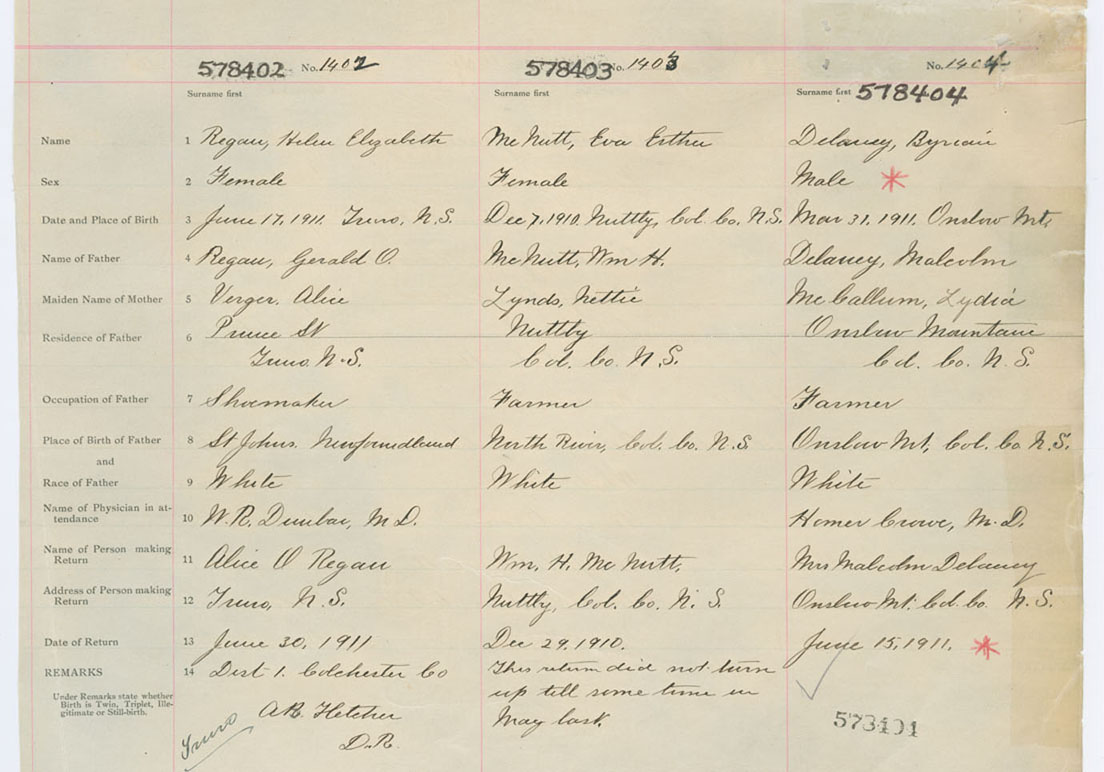 578402 No. 1402 578403 No. 1403 No. 1404
Surname first Surname first Surname first 578404
Name 1 Regan, Helen Elizabeth McNutt, Eva Esther Delaney,
Sex 2 Female Female Male *
Date and Place of Birth 3 June 17, 1911. Truro, N.S. Dec 7, 1910. Nuttby, Col. Co. N.S. Mar 31, 1911. Onslow Mt,
Name of Father 4 Regan, Gerald O. McNutt, Wm H. Delaney, Malcolm
Maiden Name of Mother 5 Verger, Alice Lynds, Nettie McCallum, Lydia
Residence of Father 6 Prince St Nuttby Onslow Mountain
Truro. N.S. Col. Co. N.S. Col. Co. N.S.
Occupation of Father 7 Shoemaker Farmer Farmer
Place of Birth of Father 8 St Johns. Newfoundland North River, Col. Co. N.S. Onslow Mt, Col. Co. N.S.
and
Race of Father 9 White White White
Name of Physician in at-
tendance 10 W.R. Dunbar, M.D. Homer Crowe, M.D.
Name of Person making
Return 11 Alice O Regan Wm. H. McNutt. Mrs Malcolm Delaney
Address of Person making
Return 12 Truro, N.S. Nuttby, Col. Co. N.S. Onslow Mt. Col. Co. N.S.
Date of Return 13 June 30, 1911 Dec 29, 1910. June 15, 1911. *
REMARKS 14 Dist 1. Colchester Co This return did not turn
Under Remarks state whether up till some time in
Birth is Twin, Triplet, Ille-
gitimate or Still-birth. A.R. Fletcher May last.
Truro D.R. 573401